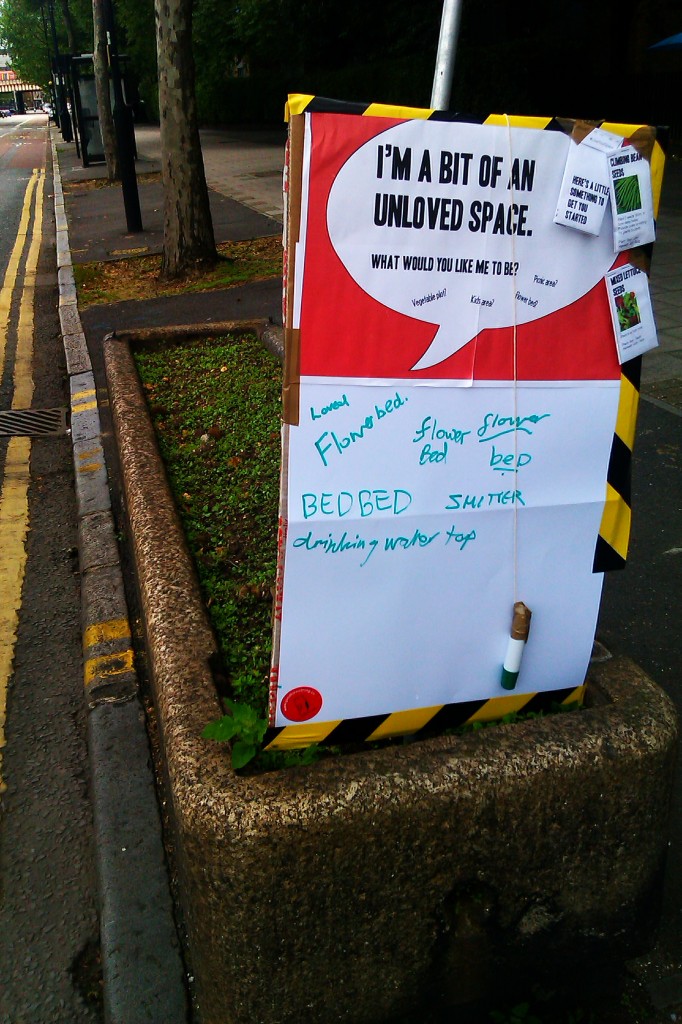 I'M A BIT OF AN
UNLOVED SPACE.
WHAT WOULD YOU LIKE ME TO BE?
Picnic area?
Vegetable plot?
Kids area?
flower bed?
HERE'S A LITTLE
SOMETHING TO
GET YOU
STARTED
CLIMBING BEAN
SEEDS
MIXED LETTUCE
SEEDS
Loved
Flowerbed.
flower
Bed
flower
bed
BEDBED
SMITTER
drinking water tap